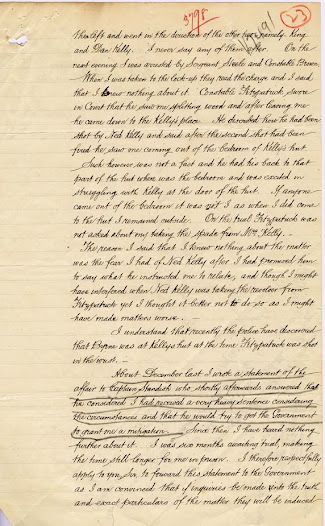 3798
23
then left and went in the direction of the other two namely King
and Dan Kelly. I never say any of them after. On the
next evening I was arrested by Sergeant Steele and Constable Brown.
When I was taken to the lock-up they read the charge and I said
that I knew nothing about it. Constable Fitzpatrick swore
in Court that he saw me splitting wood and after leaving me
he came down to the Kelly's place. He described how he had been
shot by Ned Kelly and said after the second shot had been
fired he saw me coming out of the bedroom of Kelly's hut.
Such however was not a fact and he had his back to that
part of the hut where was the bedroom and was engaged in
struggling with Kelly at the door of the hut. If anyone
came out of the bedroom it was not I as when I did come
to the hut I remained outside. On the trial Fitzpatrick was
not asked about my taking the spade from Mrs Kelly.
The reason I said that I knew nothing about the matter
was the fear I had of Ned Kelly after I had promised him
to say what he instructed me to relate, and though I might
have interfered when Ned Kelly was taking the revolver from
Fitzpatrick yet I thought it better not to do so as I might
have made matters worse. —
I understand that recently the police have discovered
that Byrne was at Kelly's hut at the time Fitzpatrick was shot
in the wrist. —
About December last I wrote a statement of the
affair to Captain Standish who shortly afterwards answered that
he considered I had received a very heavy sentence considering
the circumstances and that he would try to get the Government
to grant me a mitigation. Since then I have heard nothing
further about it. I was six months awaiting trial, making
the time still longer for me in prison. I therefore respectfully
apply to you, Sir, to forward this statement to the Government
as I am convinced that if enquiries be made into the truth
and exact particulars of the matter they will be induced